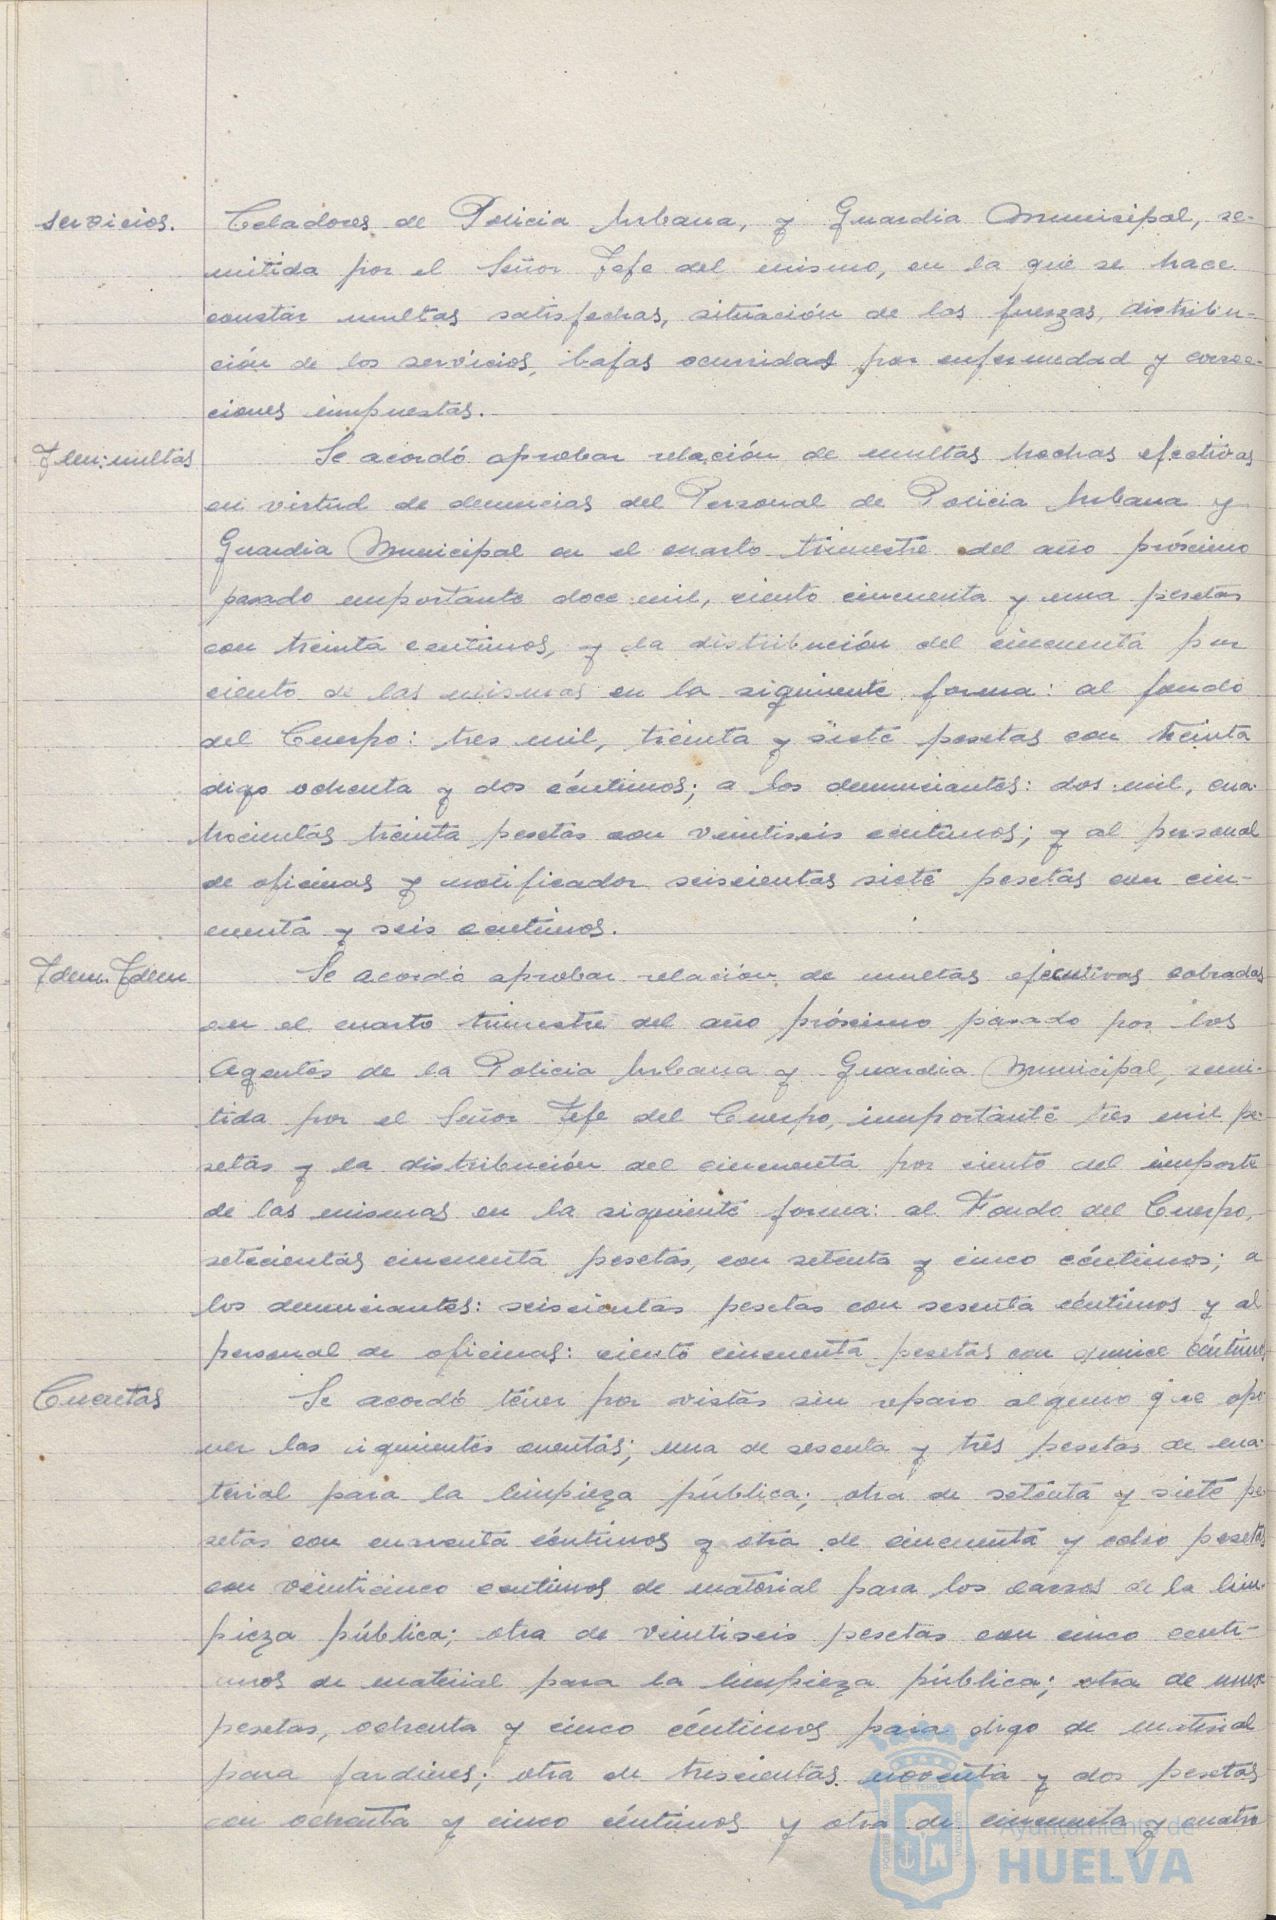 servicios.
Celadores de Policia Urbana, y Guardia Municipal, re-
mitida por el Señor Jefe del mismo, en la que se hace
constar multas satisfechas, situación de las fuerzas, distribu-
ción de los servicios, bajas ocurridas por enfermedad y correc-
ciones impuestas.
Idem: multas
Se acordó aprobar relación de multas hechas efectivas
en virtud de denuncias del Personal de Policia Urbana y
Guardia Municipal en el cuarto trimestre del año próximo
pasado importante doce mil, ciento cincuenta y una pesetas
con treinta centimos, y la distribución del cincuenta por
ciento de las mismas en la siguiente forma: al fondo
del Cuerpo: tres mil, treinta y siete pesetas con treinta
digo ochenta y dos céntimos; a los denunciantes: dos mil, cua-
trocientas treinta pesetas con veintiseis centimos; y al personal
de oficinas y notificador seiscientas siete pesetas con cin-
cuenta y seis centimos.
Idem. Idem
Se acordó aprobar relación de multas ejecutivas cobradas
en el cuarto trimestre del año próximo pasado por los
Agentes de la Policia Urbana y Guardia Municipal, remi-
tida por el Señor Jefe del Cuerpo, importante tres mil pe-
setas y la distribución del cincuenta por ciento del importe
de las mismas en la siguiente forma: al Fondo del Cuerpo,
setecientas cincuenta pesetas, con setenta y cinco céntimos; a
los denunciantes: seiscientas pesetas con sesenta céntimos y al
personal de oficinas: ciento cincuenta pesetas con quince céntimos
Cuentas
Se acordó tener por vistas sin reparo alguno que opo
ner las iguientes cuentas; una de sesenta y tres pesetas de ma-
terial para la limpieza pública; otra de setenta y siete pe-
setas con cuarenta céntimos y otra de cincuenta y ocho pesetas
con veinticinco centimos de material para los carros de la lim-
pieza pública; otra de veintiseis pesetas con cinco centi-
mos de material para la limpieza pública; otra de
pesetas, ochenta y cinco céntimos para digo de material
para jardines; otra de trescientas noventa y dos pesetas
con ochenta y cinco céntimos y otra de cincuenta y cuatro
Ayuntamiento de
HUELVA